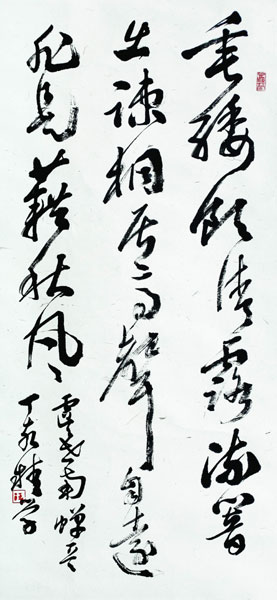 垂緌飲清露流響
出疎桐居高聲自遠
非是藉秋風
虞世南蟬
丁亥